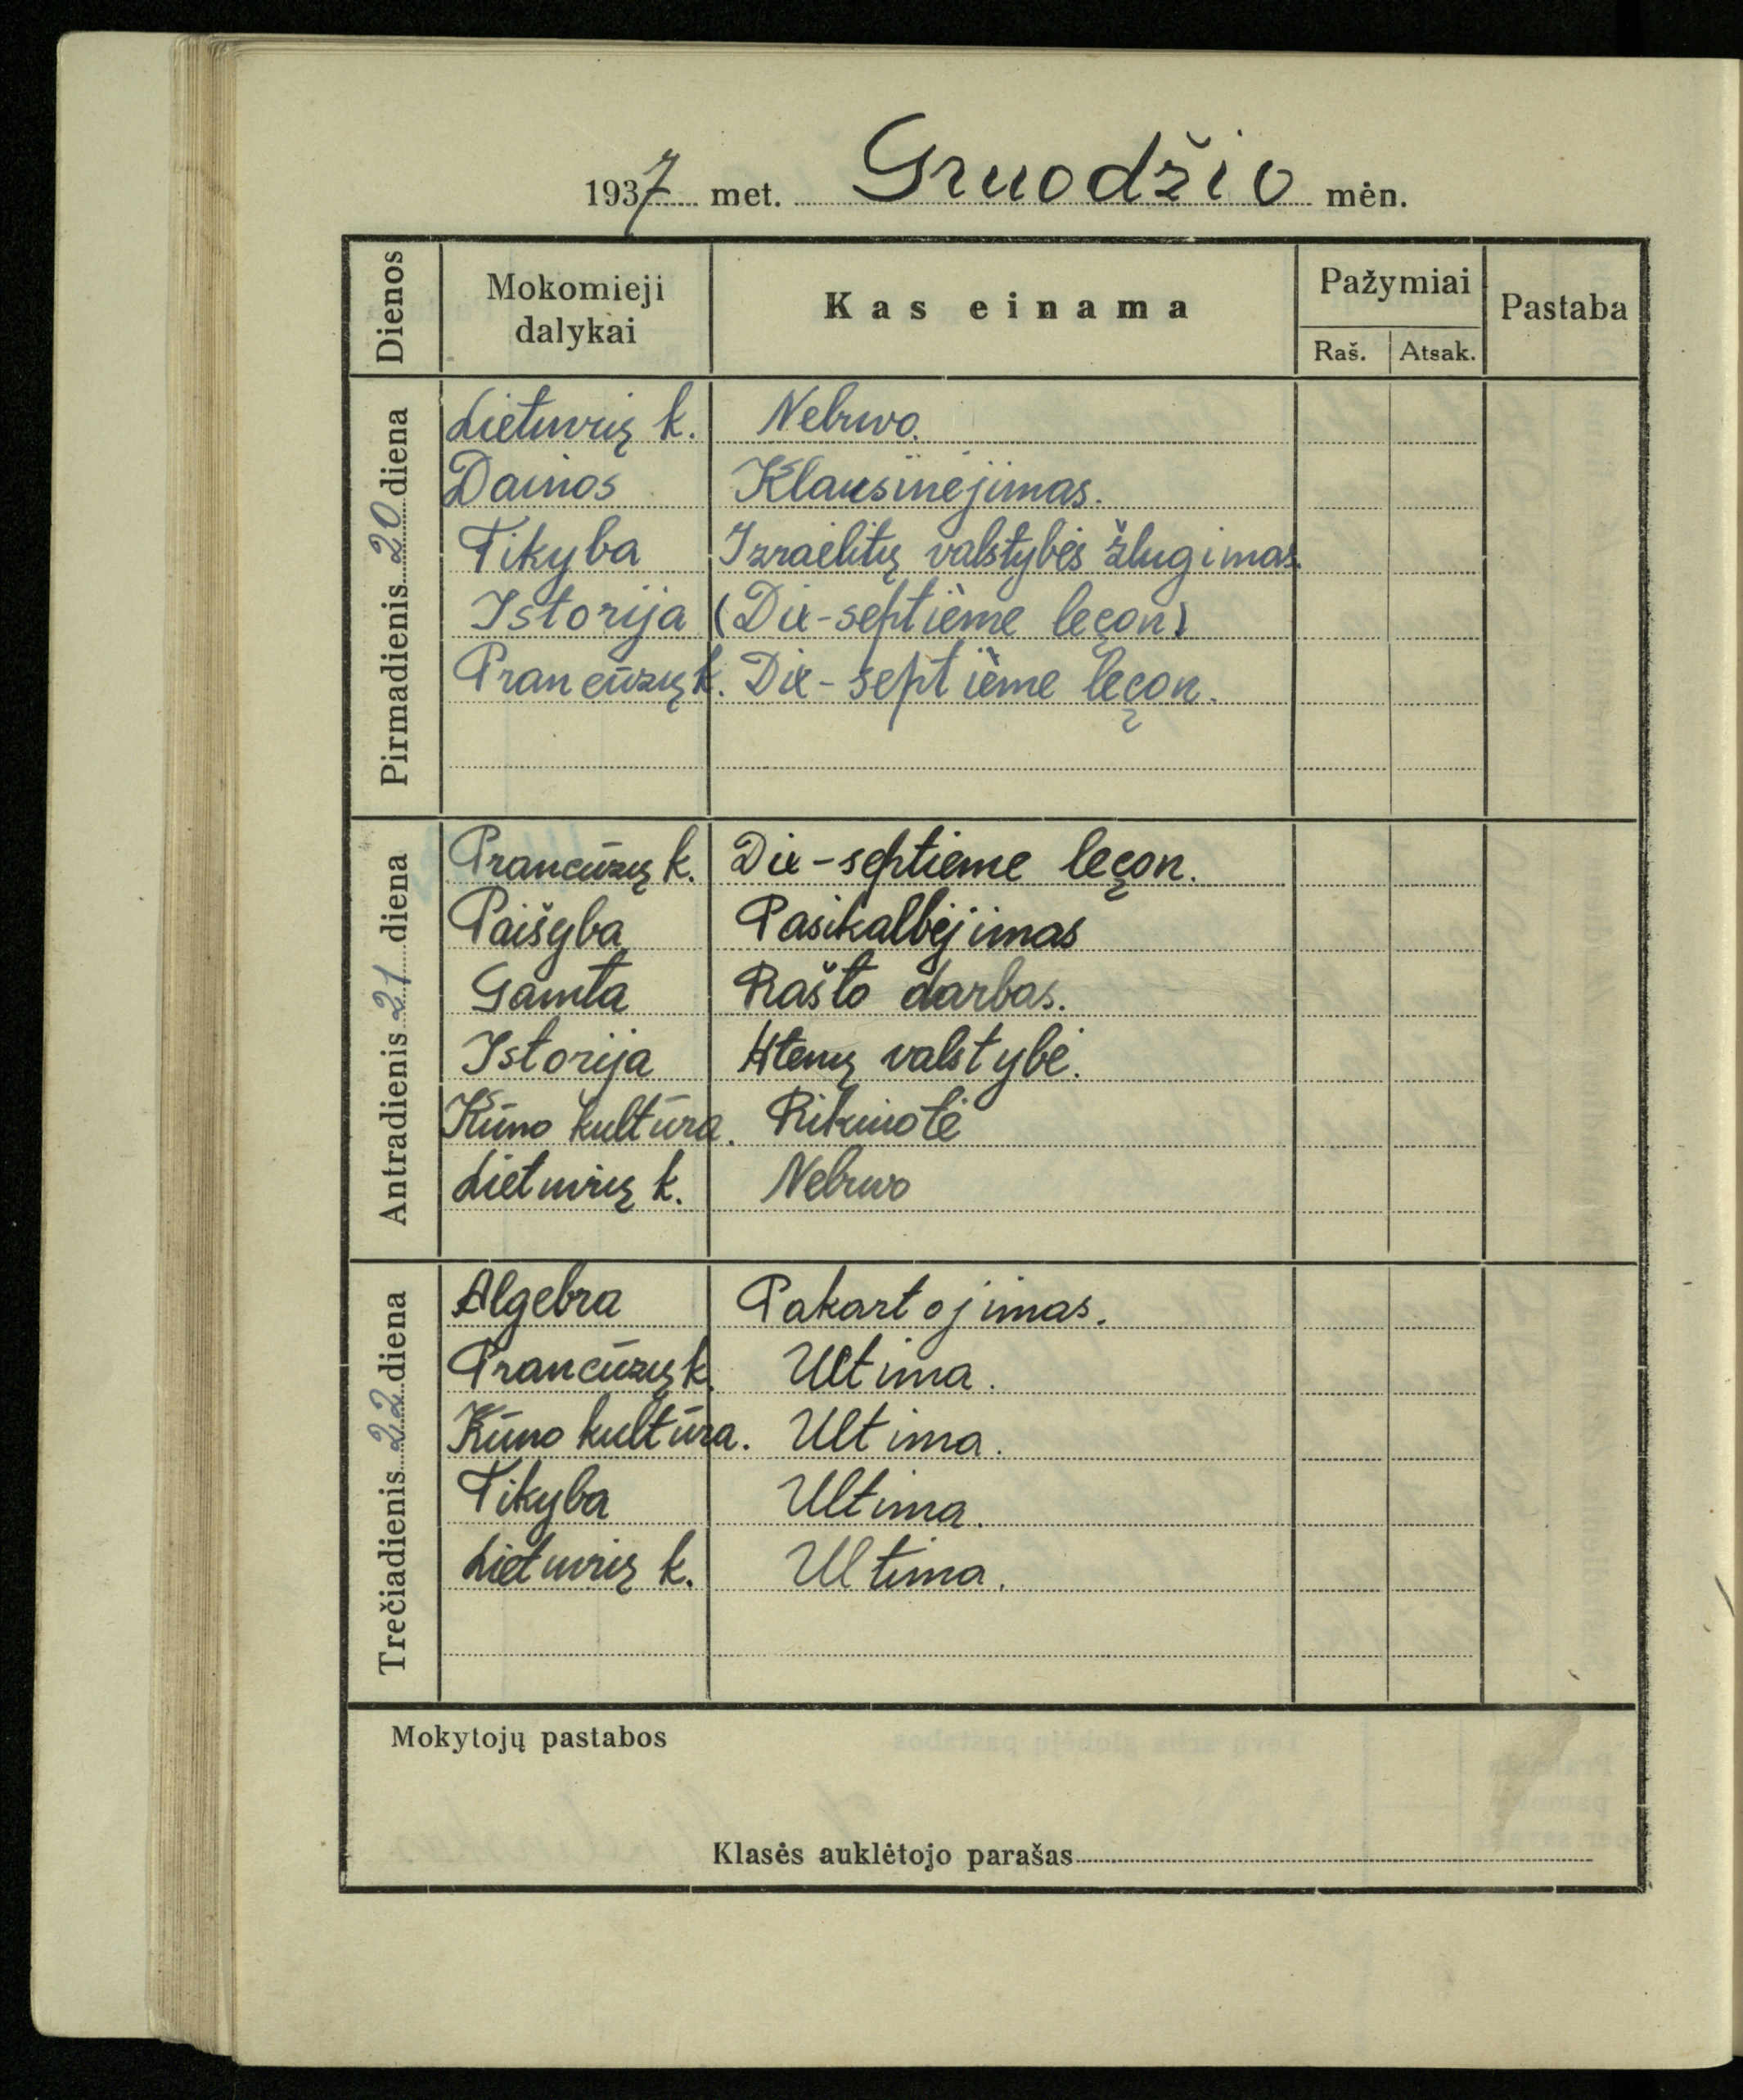 1937 met. Gruodžio mėn.
Dienos Mokomieji dalykai Kas einama Pažymiai Pastaba
Raš. Atsak.
Pirmadienis 20 diena
Lietuvių k. Nebuvo.
Dainos Klausinėjimas.
Tikyba Izraelitų valstybės žlugimas.
Istorija (Dix-septième leçon)
Prancūzų k. Dix-septième leçon.
Antradienis 21 diena
Prancūzų k. Dix-septieme leçon.
Paišyba Pasikalbėjimas
Gamta Rašto darbas.
Istorija Atenų valstybė.
Kūno kultūra. Rikiuotė
Lietuvių k. Nebuvo
Trečiadienis 22 diena
Algebra Pakartojimas.
Prancūzų k. Ultima.
Kūno kultūra. Ultima.
Tikyba Ultima.
Lietuvių k. Ultima.
Mokytojų pastabos
Klasės auklėtojo parašas